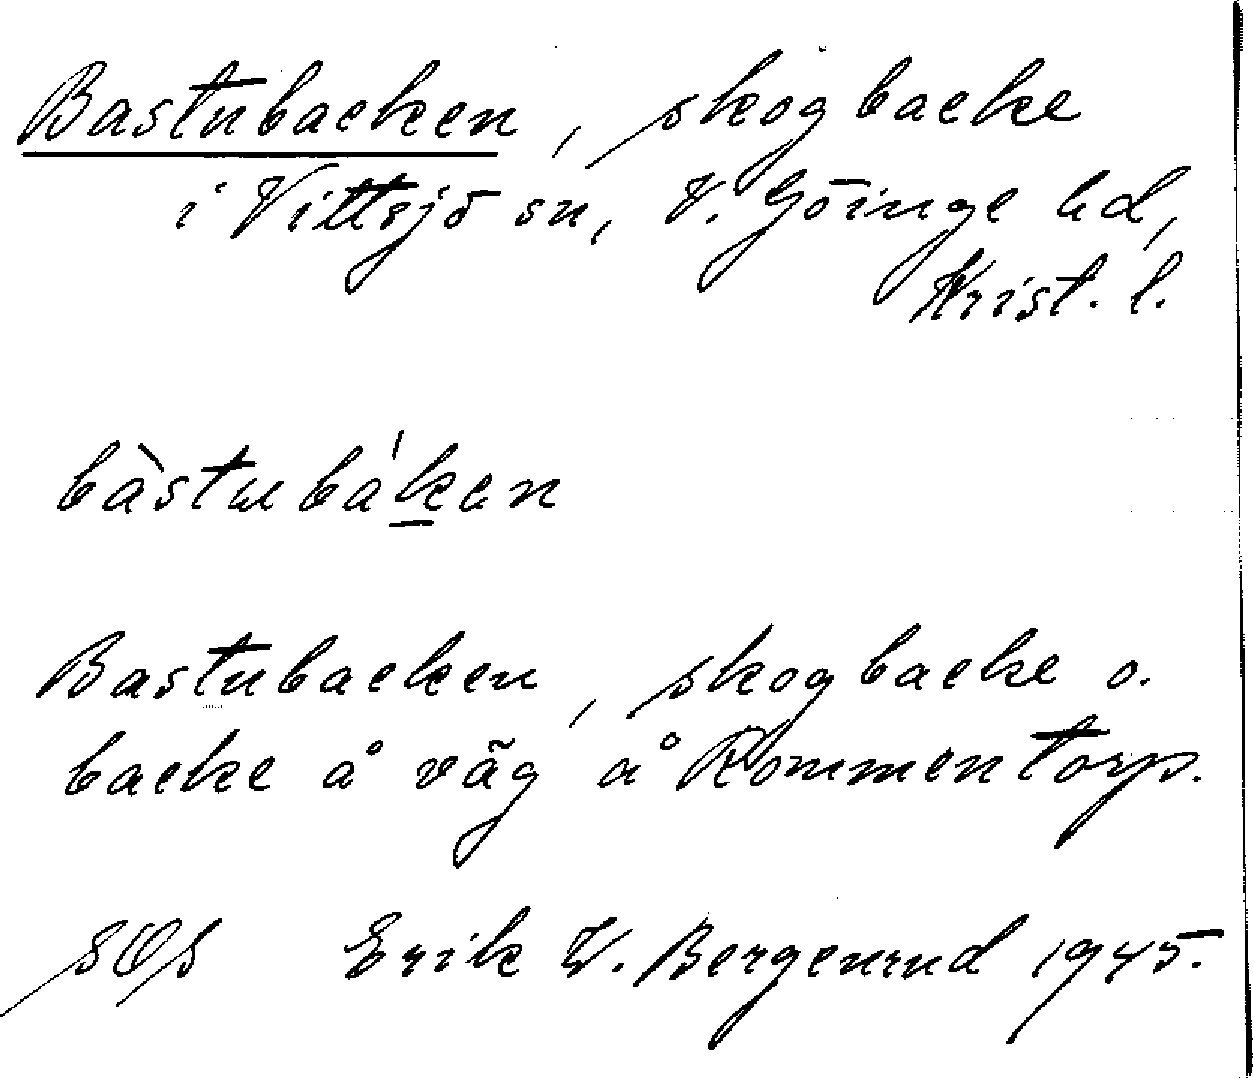 Bastubacken, skogbacke
i Vittsjö sn, V. Göinge hd,
Krist. l.
bàstubáken
Bastubacken, skogbacke o.
backe å väg å Rommentorp.
Erik W. Bergenrud 1945.